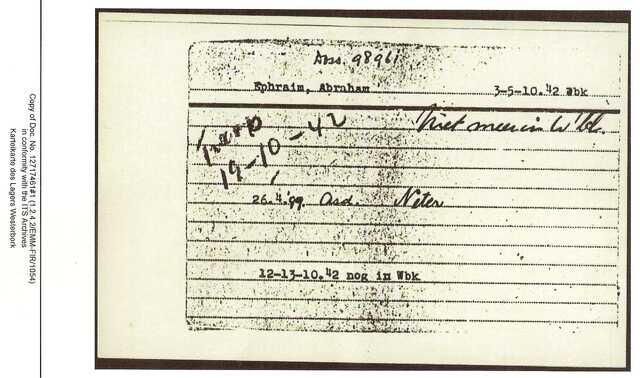 Doss. 98961
Ephraim, Abraham 3-5-10.42 Wbk
Niet meer in W'bk.
Transp
19-10-42
26.4.'99 Asd. Neter
12-13-10.42 nog in Wbk
Copy of Doc. No. 12717461#1 (1.2.4.2/ENMM-FIR/1054)
in conformity with the ITS Archives
Karteikarte des Lagers Westerbork